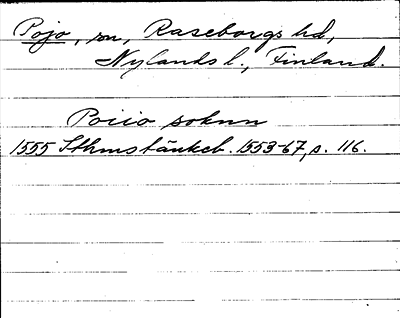 Pojo, sn, Raseborgs hd,
Nylands l., Finland.
Poiio soknn
1555 Sthms tänkeb. 1553-67, s. 116.